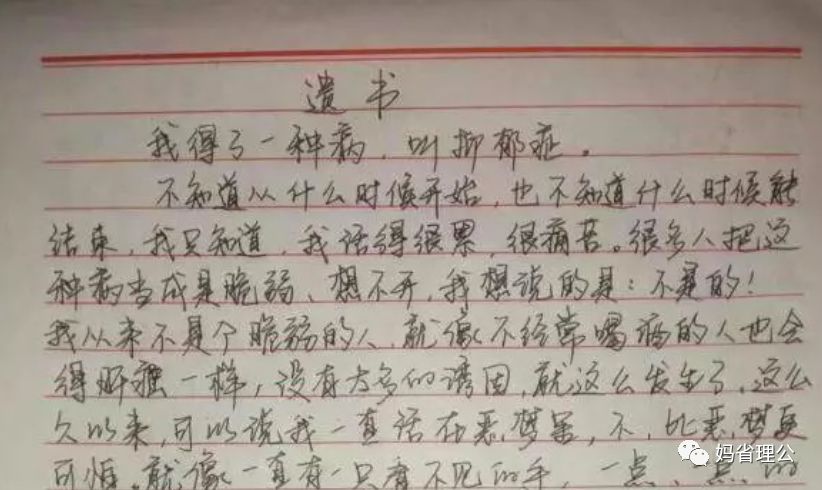 遗书
我得了一种病，叫抑郁症。
不知道从什么时候开始，也不知道什么时候能
结束，我只知道，我活得很累，很痛苦。很多人把这
种病当成是脆弱、想不开，我想说的是：不是的！
我从来不是个脆弱的人，就像不经常喝酒的人也会
得肝癌一样，没有太多的诱因，就这么发生了，这么
久以来，可以说我一直活在恶梦里，不，比恶梦更
可怕。就像一直有一只看不见的手，一点、一点的
妈省理公